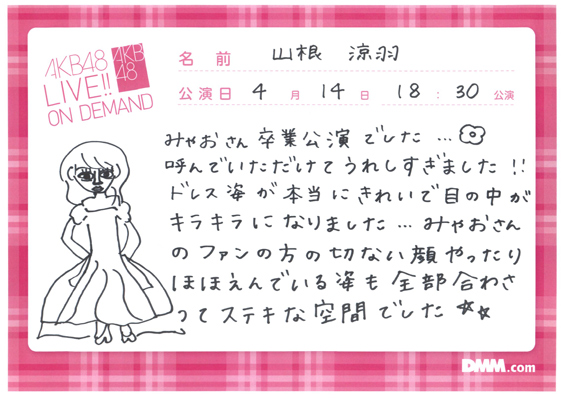 AKB48
LIVE!!
ON DEMAND
AKB
48
名前 山根 涼羽
公演日 4月14日 18:30公演
みゃおさん卒業公演でした…
呼んでいただけてうれしすぎました!!
ドレス姿が本当にきれいで目の中が
キラキラになりました…みゃおさん
のファンの方の切ない顔やったり
ほほえんでいる姿も全部合わさ
ってステキな空間でした☆☆
DMM.com